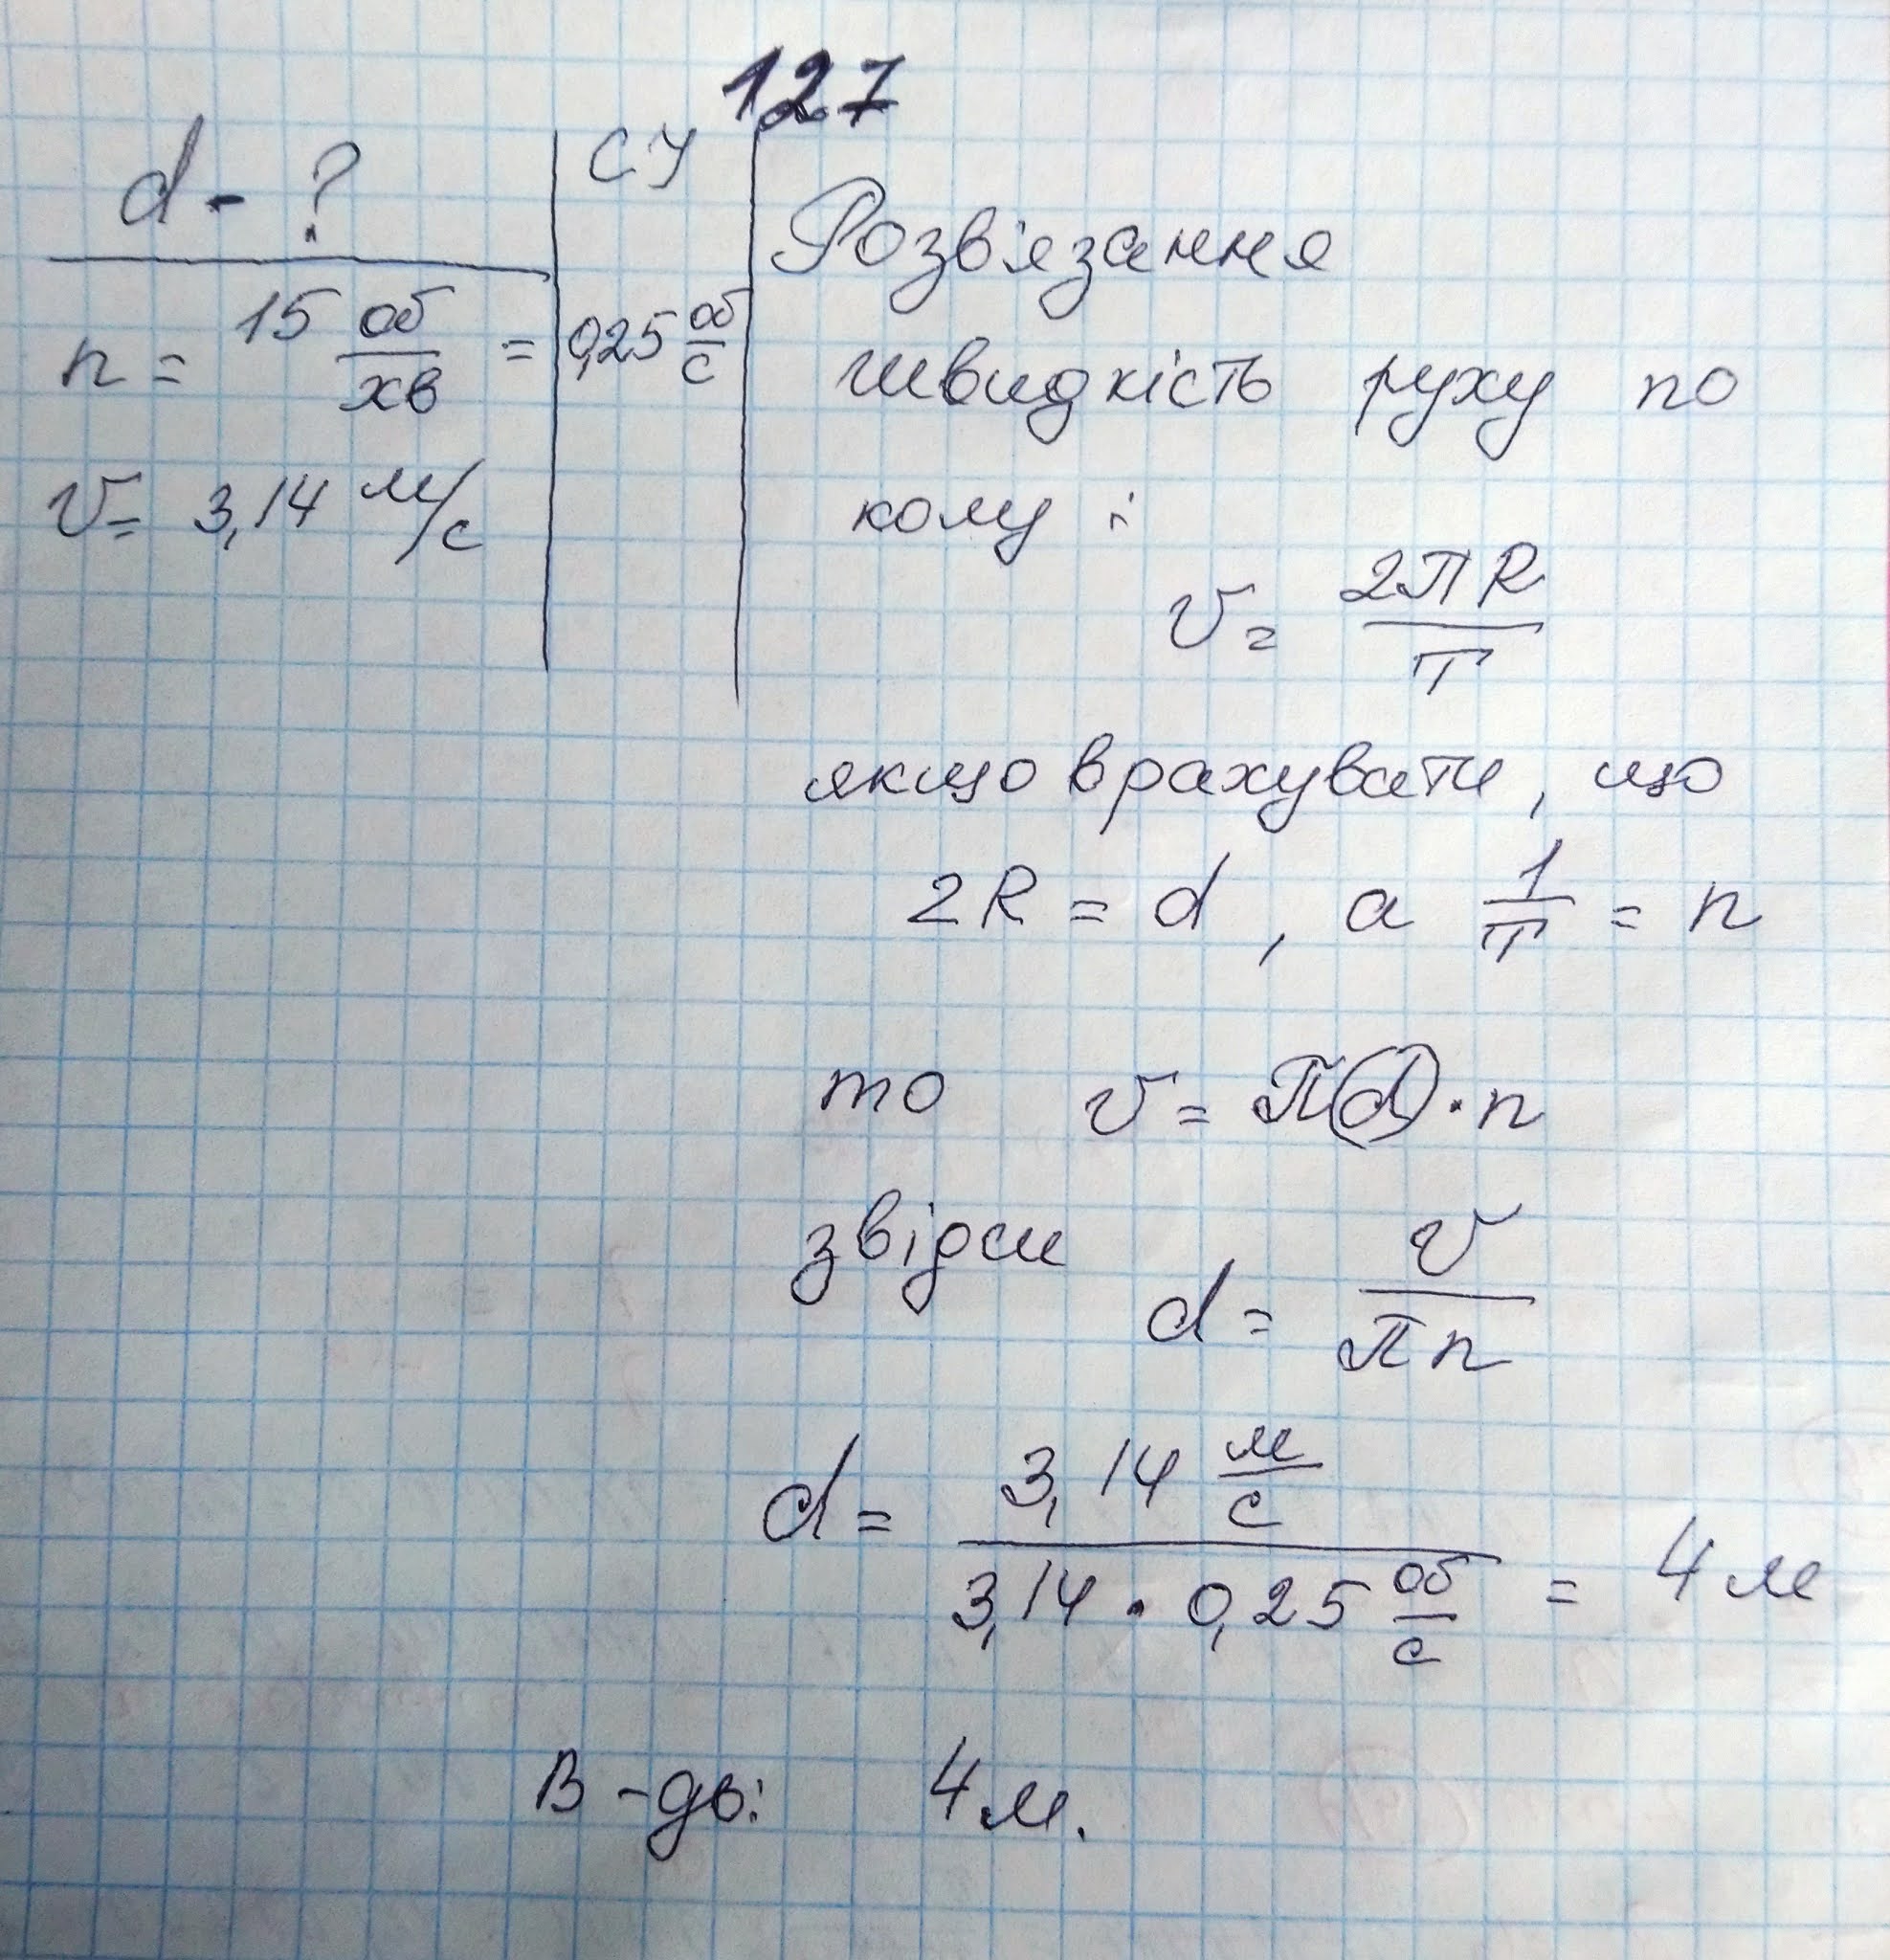 127
d - ?
СУ
n = 15 об/хв = 0,25 об/с
v = 3,14 м/с
Розв'язання
швидкість руху по
колу :
v = 2πR/T
якщо врахувати, що
2R = d , а 1/T = n
то v = πd · n
звідси d = v/πn
d = 3,14 м/с / 3,14 · 0,25 об/с = 4 м
В-дь: 4 м.